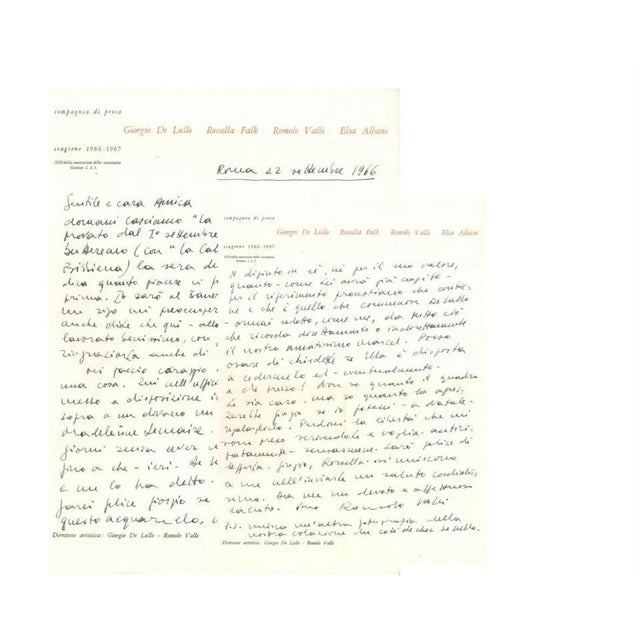 compagnia di prosa
Giorgio De Lullo Rossella Falk Romolo Valli Elsa Albani
stagione 1966-1967
Roma 22 settembre 1966
Gentile e cara Amica
domani lasciamo "La
provato dal 1° settembre
Sant'Arcangelo (con "La Cal
Bibbiena) la sera de
dica quanto piacere vi p
prima. Io sarò al
mi preoccup
anche dirle che qui - alla
lavorato benissimo, con
ringraziarla anche di
mi faccio coraggio
una cosa. Qui nell'uffici
messo a disposizione
sopra a un divano un
Madeleine Lemaire.
giorni senza aver
fino a che - ieri - De
e me lo ha detto.
farei felice Giorgio se
questo acquarello, 
Direzione artistica: Giorgio De Lullo - Romolo Valli
compagnia di prosa
Giorgio De Lullo Rossella Falk Romolo Valli Elsa Albani
stagione 1966-1967
il dipinto in sé, né per il suo valore,
quanto - come Lei avrà già capito -
per il riferimento proustiano che contie-
ne e che è quello che commuove De Lullo
- ormai sedotto, come me, da tutto ciò
che ricorda direttamente o indirettamente
il nostro amatissimo Marcel. Posso
osare di chiederle se Ella è disposta
a cedermelo ed - eventualmente -
a che prezzo? Non so quanto il quadro
Le sia caro. Ma so quanto lo apprez-
zerebbe Giorgio se io potessi - a Natale -
regalarglielo. Perdoni la libertà che mi
sono preso scrivendole e voglia, antici-
patamente - scusarmene. Sarò felice di
leggerla. Giorgio, Rossella si uniscono
a me nell'inviarle un saluto cordialis-
simo. Da me un devoto e affettuoso
saluto. Suo Romolo Valli
P.S.
nostra colazione in
Direzione artistica: Giorgio De Lullo - Romolo Valli